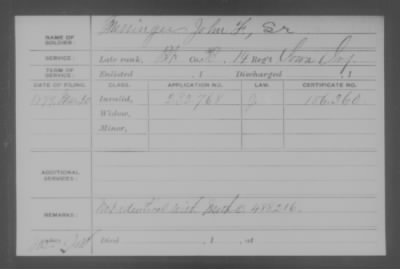 NAME OF SOLDIER: Messinger John F, Sr
SERVICE: Late rank, Pt. Co. 14 Reg't Iowa Inf.
TERM OF SERVICE: Enlisted , 1 Discharged , 1
DATE OF FILING. CLASS. APPLICATION NO. LAW. CERTIFICATE NO.
Invalid, 186.360
Widow,
Minor,
ADDITIONAL SERVICES:
REMARKS: Not identical with 488216.
Died , 1 , at